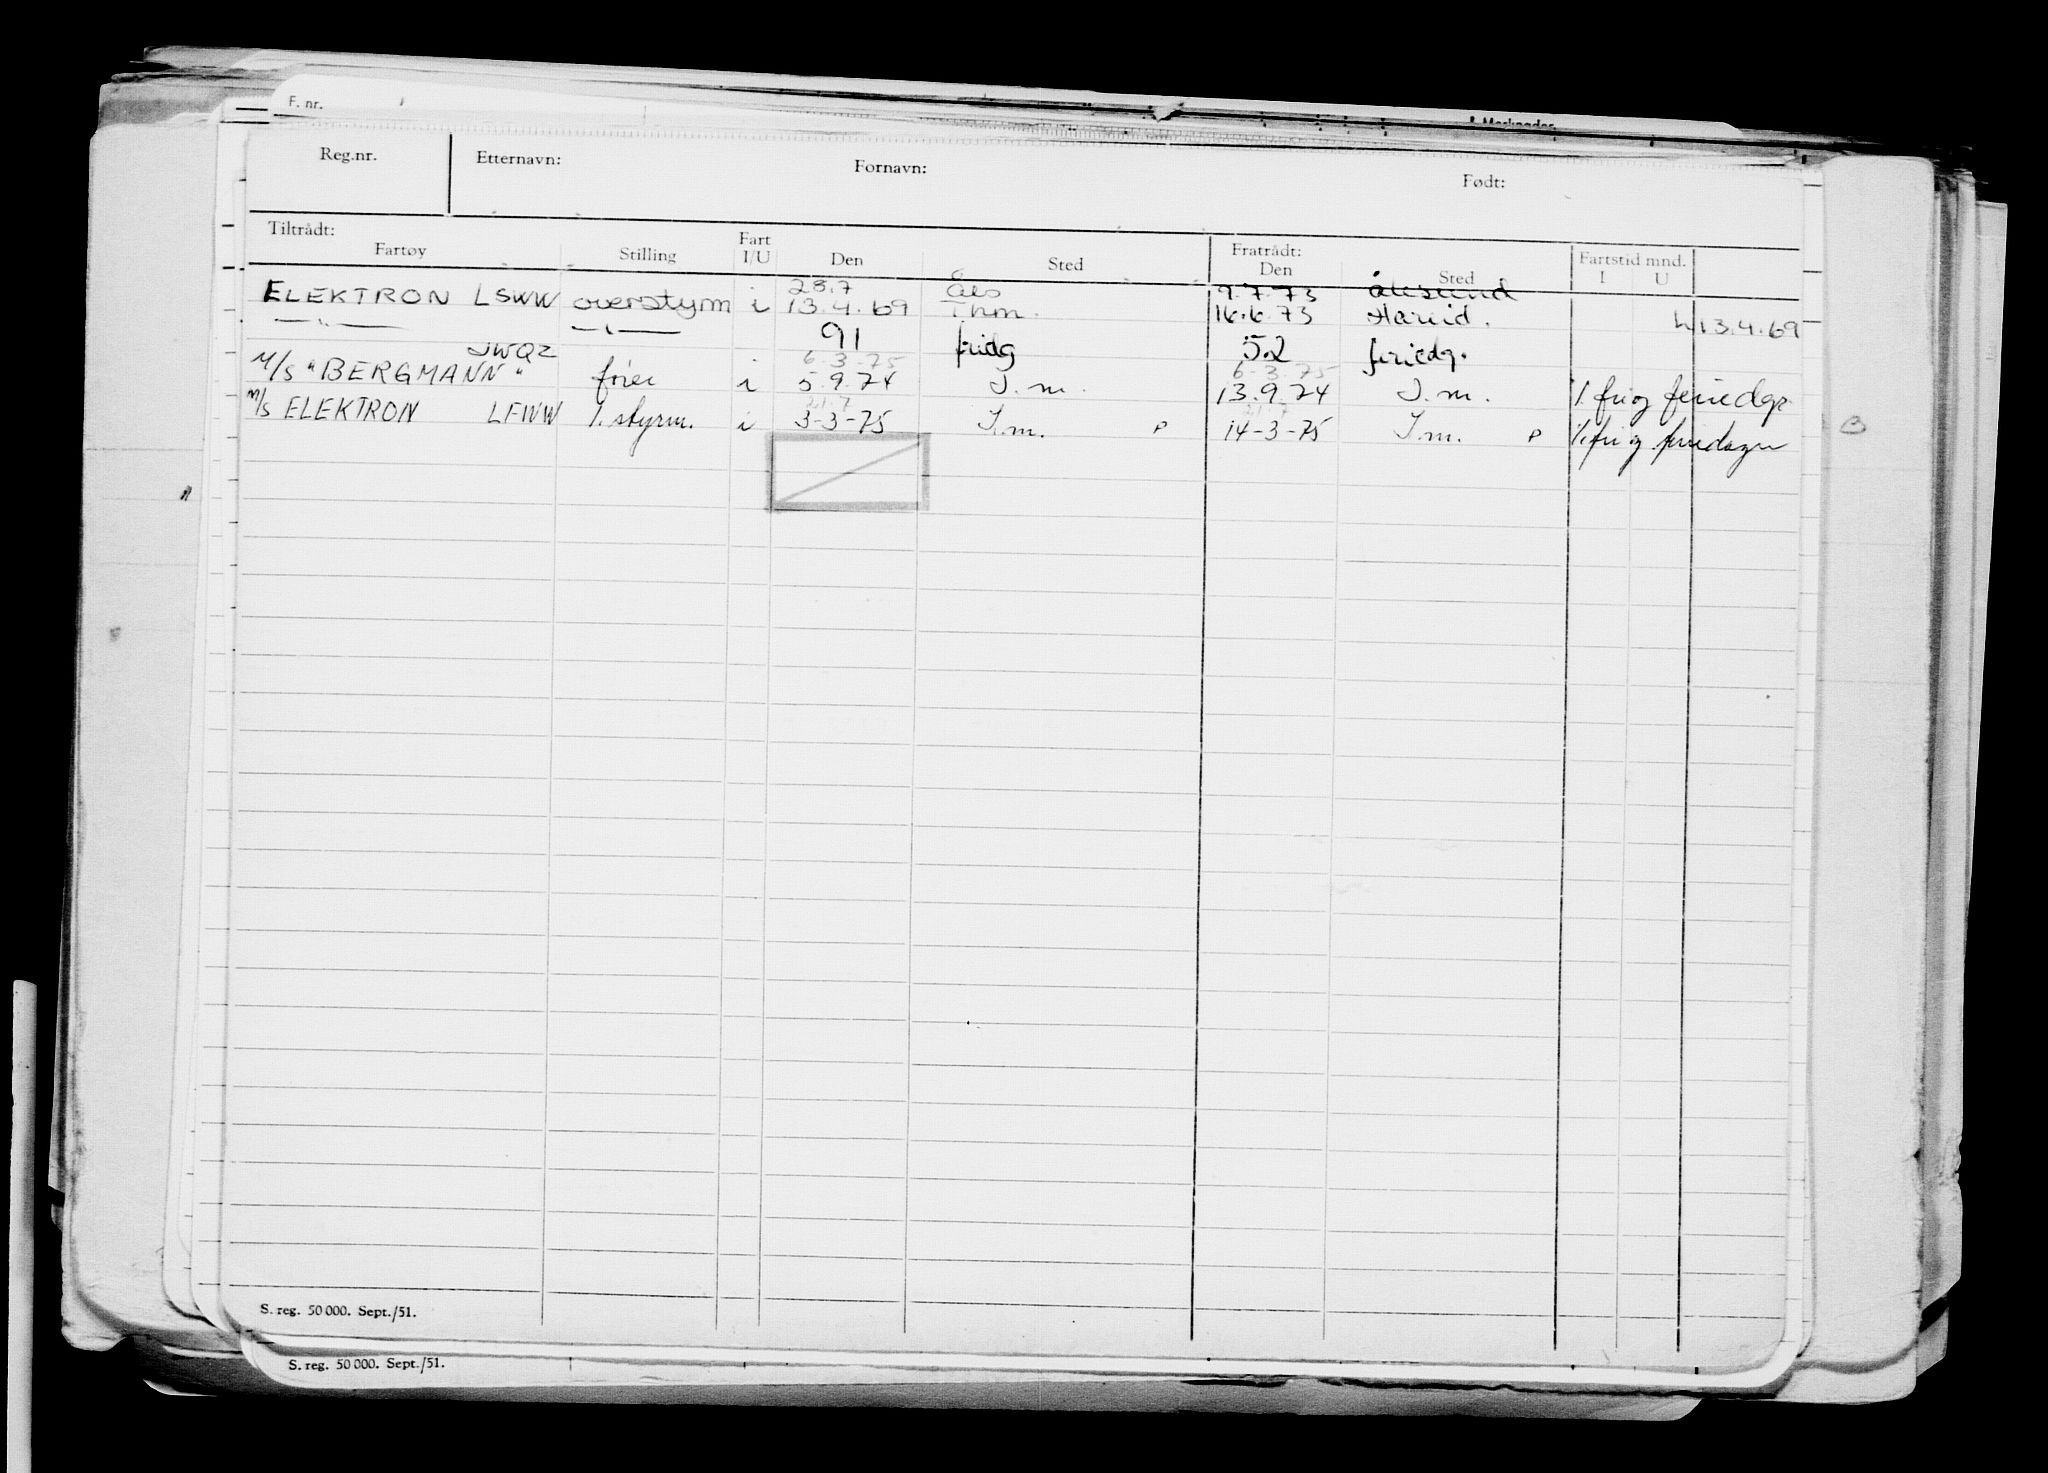 F. nr.
Reg.nr. Etternavn: Fornavn: Født:
Tiltrådt: Fratrådt:
Fartøy Stilling Fart I/U Den Sted Den Sted Fartstid mnd. I U
28.7 Åls 9.7.73 Ålesund
ELEKTRON LSWW overstyrm i 13.4.69 Thm. 16.6.73 Hareid. 13.4.69
—"— —"— 91 fridg 52 feriedg.
JWQZ 6-3-75 6-3-75
M/S "BERGMANN" fører i 5.9.74 T.m. 13.9.74 T.m. /. fri og feriedgr
21.7 21.7
M/S ELEKTRON LFWW 1. styrm. i 3-3-75 T.m. P 14-3-75 T.m. P /. fri og feriedager
S. reg. 50 000. Sept./51.
S. reg. 50 000. Sept./51.